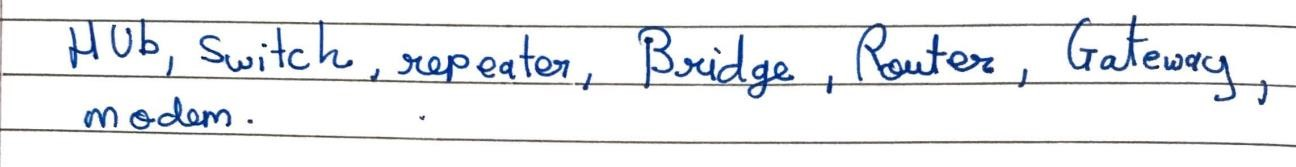 HUb, Switch, repeater, Bridge, Router, Gateway,
modem.